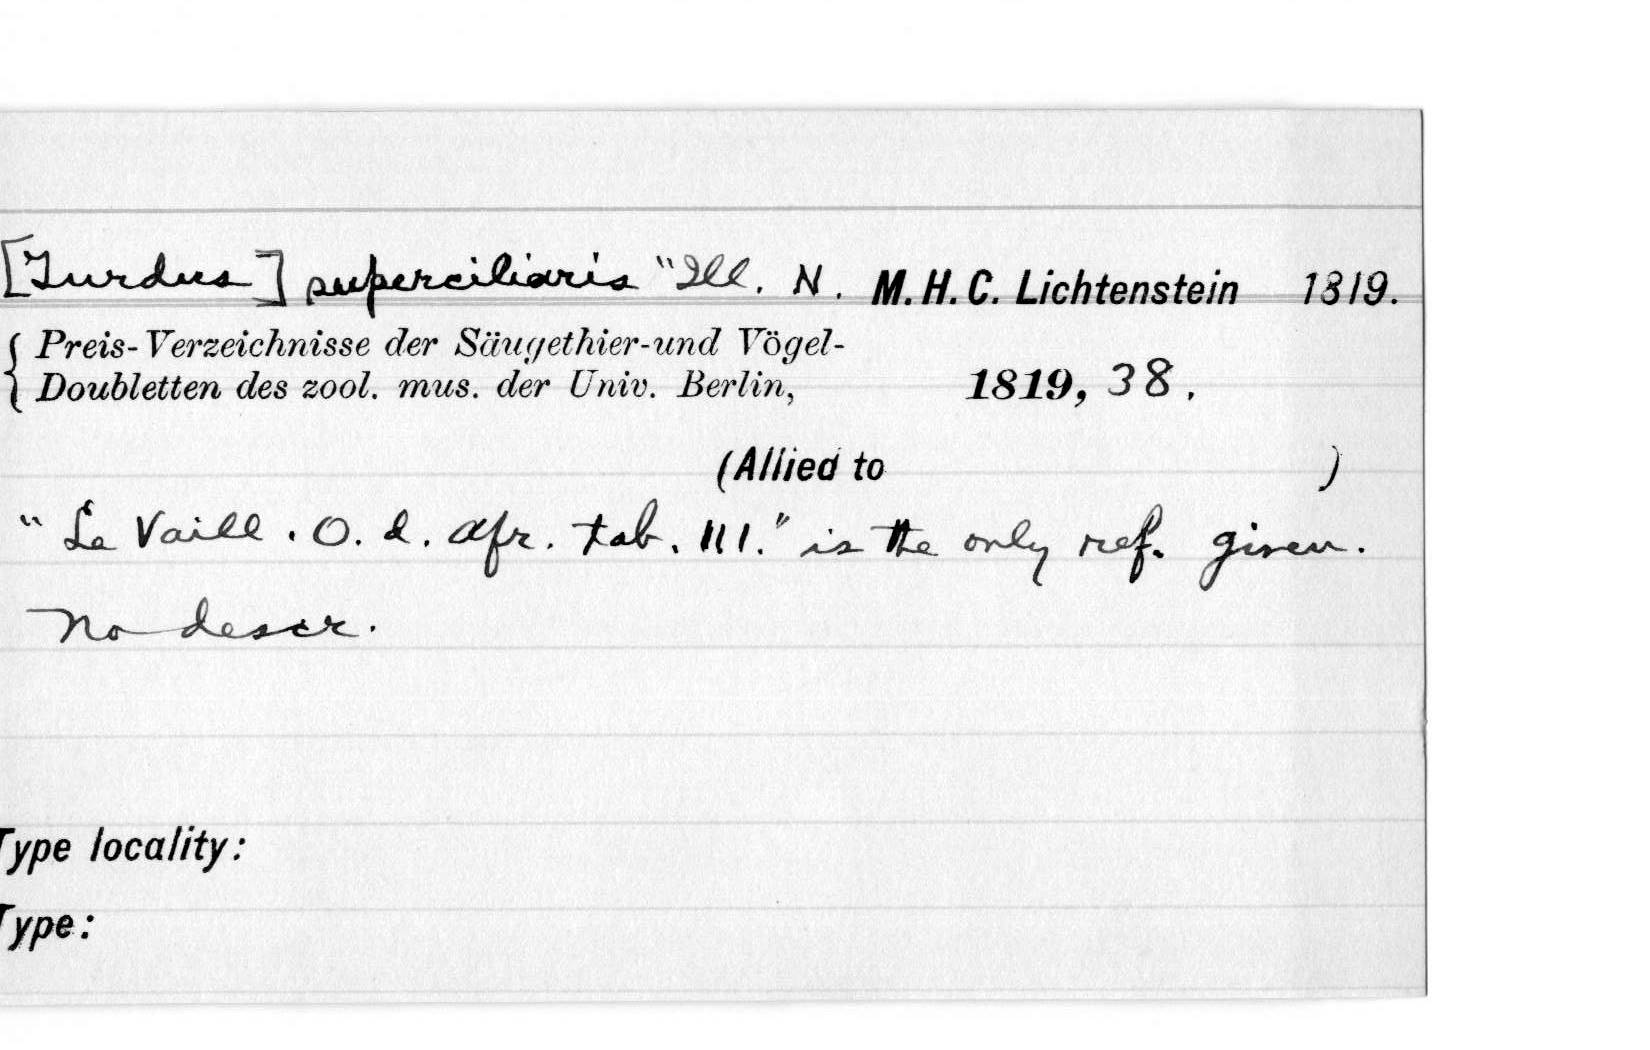 [Turdus] superciliaris "Ill. N. M. H. C. Lichtenstein 1819.
Preis-Verzeichnisse der Säugethier-und Vögel-
Doubletten des zool. mus. der Univ. Berlin, 1819, 38.
(Allied to )
"Le Vaill. O. d. Afr. tab. 111." is the only ref. given.
No descr.
Type locality:
Type: